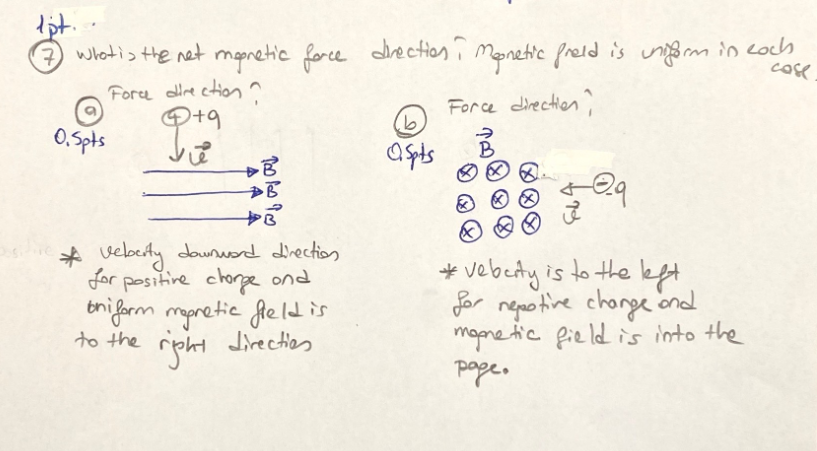 1pt.
7 What is the net magnetic force direction? Magnetic field is uniform in each case.
a Force direction?
0.5pts
+ +q
v
B
B
B
* velocity downward direction
for positive charge and
uniform magnetic field is
to the right direction
b Force direction?
0.5pts
B
x x x
x x x
x x x
- -q
v
* velocity is to the left
for negative charge and
magnetic field is into the
page.